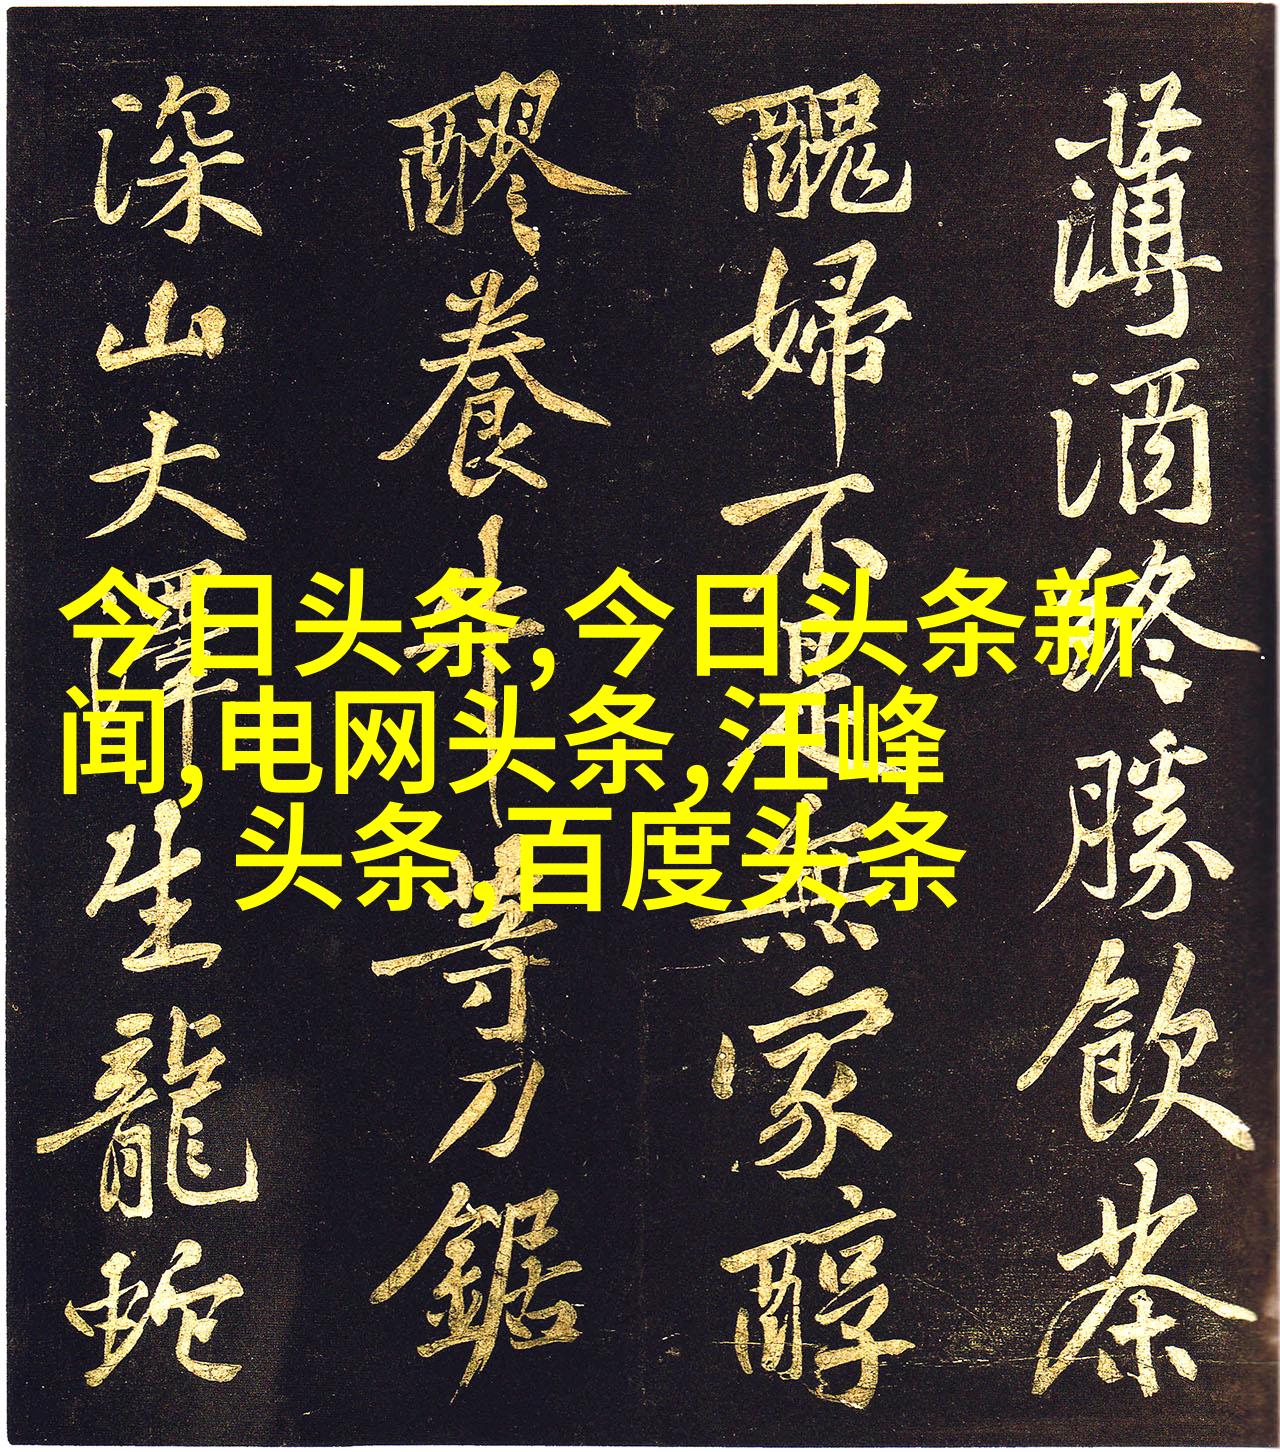 薄酒終勝飲茶
醜婦不是無家醇
醪養牛等刀鋸
深山大澤生龍蛇
今日头条,今日头条新
闻,电网头条,汪峰
头条,百度头条